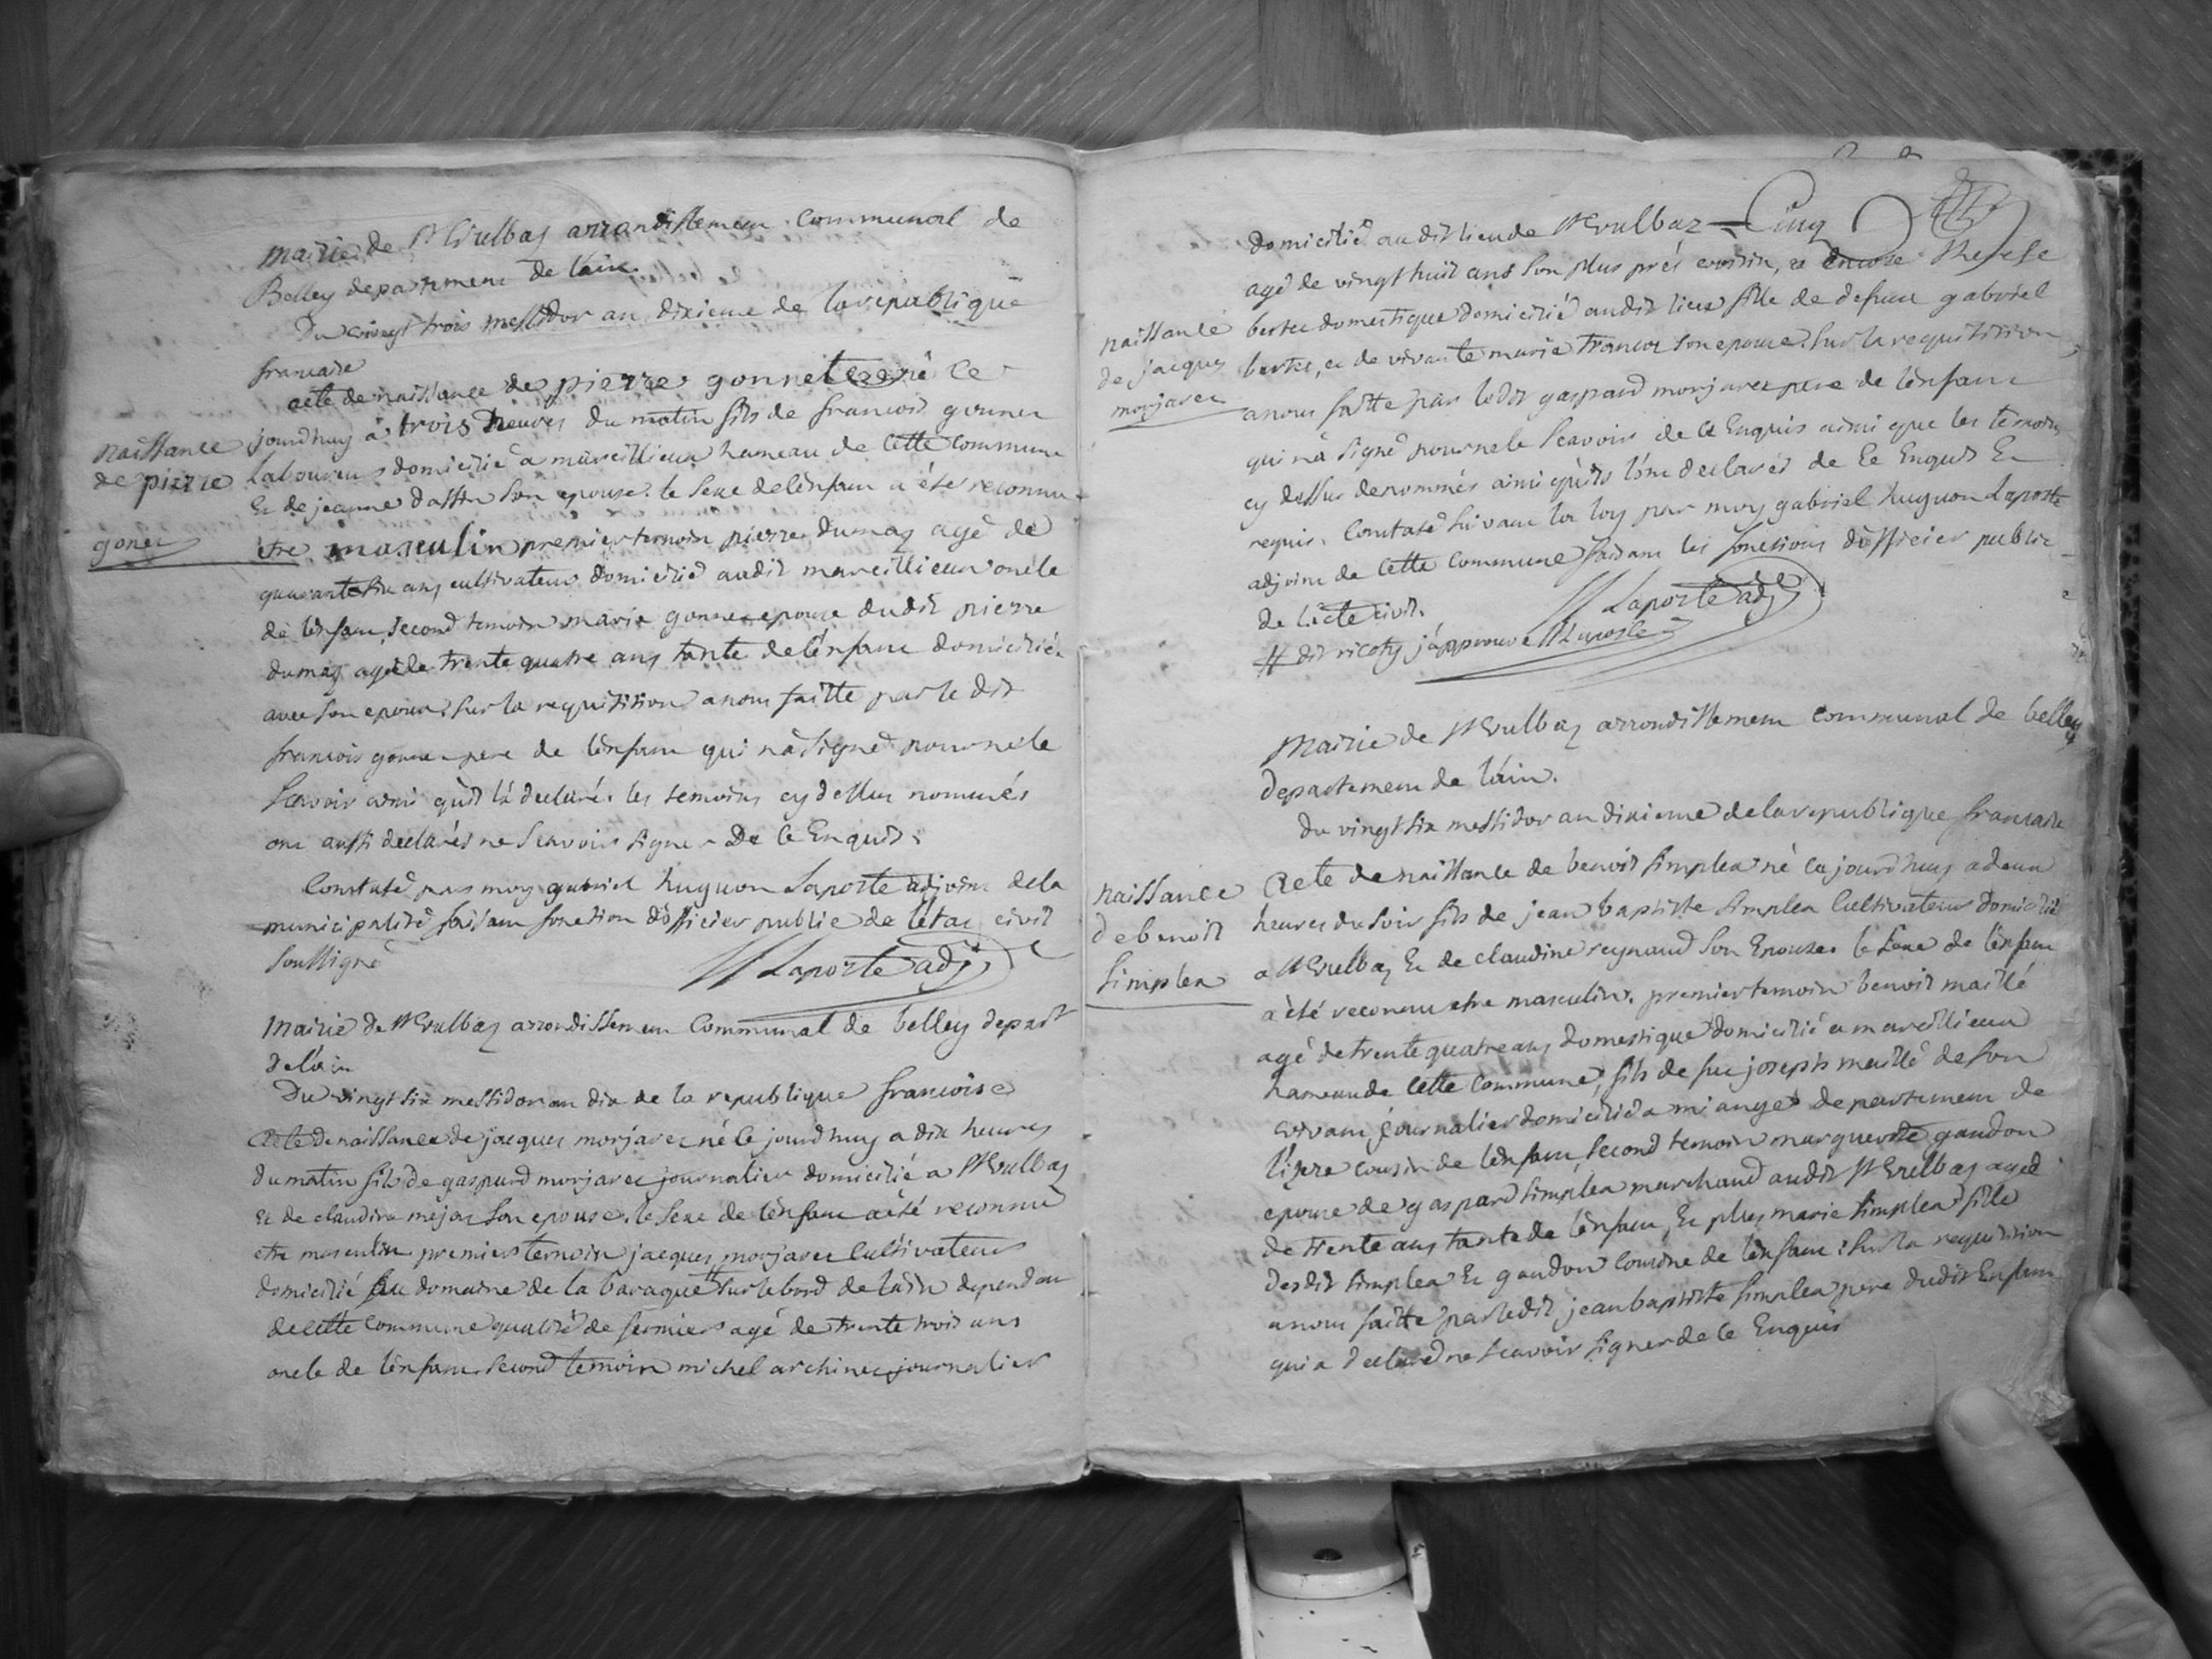 mairie de St Vulbas arrondissement communal de
Belley departement de lain.
Du vingt trois messidor an dixieme de la republique
francaise
acte de naissance de pierre gonnet né ce
naissance
de pierre
gonet
jourdhuy a trois heures du matin fils de francois gonnet
laboureur domicilié a marcillieux hameau de cette commune
Et de jeanne dassin son epouse. le sexe de lenfant a été reconnu
etre masculin premier temoin pierre dumas agé de
quarante six ans cultivateur domicilié audit marcillieux oncle
de lenfant, second temoin marie gonnet epouse dudit pierre
dumas agée de trente quatre ans tante de lenfant domiciliée
avec son epoux. sur la requisition a nous faitte par le dit
francois gonnet pere de lenfant qui n'a signé pour ne le
scavoir ainsi qu'il l'a declaré. les temoins cy dessus nommés
ont aussi declarés ne scavoir signer De ce Enquis.
Constaté par moy gabriel huguon Laporte adjoint de la
municipalité faisant fonction d'officier public de l'état civil
soussigné
H Laporte adj
Mairie de St Vulbas arrondissement Communal de belley depart
de lain
Du vingt six messidor an dix de la republique francoise
Acte de naissance de jacques morjaret né le jourdhuy a dix heures
du matin fils de gaspard morjaret journalier domicilié a St Vulbas
Et de claudine mejat son epouse. le sexe de lenfant a été reconnu
etre masculin premier temoin jacques morjaret Cultivateur
domicilié au domaine de la baraque # sur le bord de lain dependant
de cette commune qualité de fermier agé de trente trois ans
oncle de lenfant second temoin michel archinet journalier
domicilié au dit lieu de St Vulbaz = Cinq
agé de vingt huit ans son plus près voisin, et encore Therese
naissance
de jacques
morjaret
bertet domestique domicilié audit lieu fille de defunt gabriel
bertet, et de vivante marie francoz son epouse. sur la requisition
a nous faitte par ledit gaspard morjaret pere de lenfant
qui n'a signé pour ne le scavoir de ce Enquis ainsi que les temoins
cy dessus denommés ainsi qu'ils l'ont declarés de ce Enquis Et
requis. Constaté suivant la loy par moy gabriel huguon Laporte
adjoint de cette commune faisant les fonctions d'officier public
de l'acte civil.
H Laporte adj
# dit ricoty j'approuve H Laporte
Mairie de St Vulbaz arrondissement communal de belley
departement de lain.
du vingt six messidor an dixieme de la republique francaise
naissance
de benoit
simplea
Acte de naissance de benoit simplea né ce jourdhuy a deux
heures du soir fils de jean baptiste simplea Cultivateur domicilié
a St Vulbaz Et de claudine reynaud son Epouse. le sexe de lenfant
a été reconnu etre masculin. premier temoin benoit maillé
agé de trente quatre ans domestique domicilié a marcillieux
hameau de cette commune, fils de feu joseph maillé de son
vivant journalier domicilié a mianges departement de
l'isere cousin de lenfant, second temoin marguerite gaudon
epouse de gaspard simplea marchand audit St Vulbaz agée
de trente ans tante de lenfant, Et plus marie simplea fille
desdit simplea Et gaudon cousine de lenfant: sur la requisition
a nous faitte par ledit jean baptiste simplea pere dudit Enfant
qui a declaré ne scavoir signer de ce Enquis